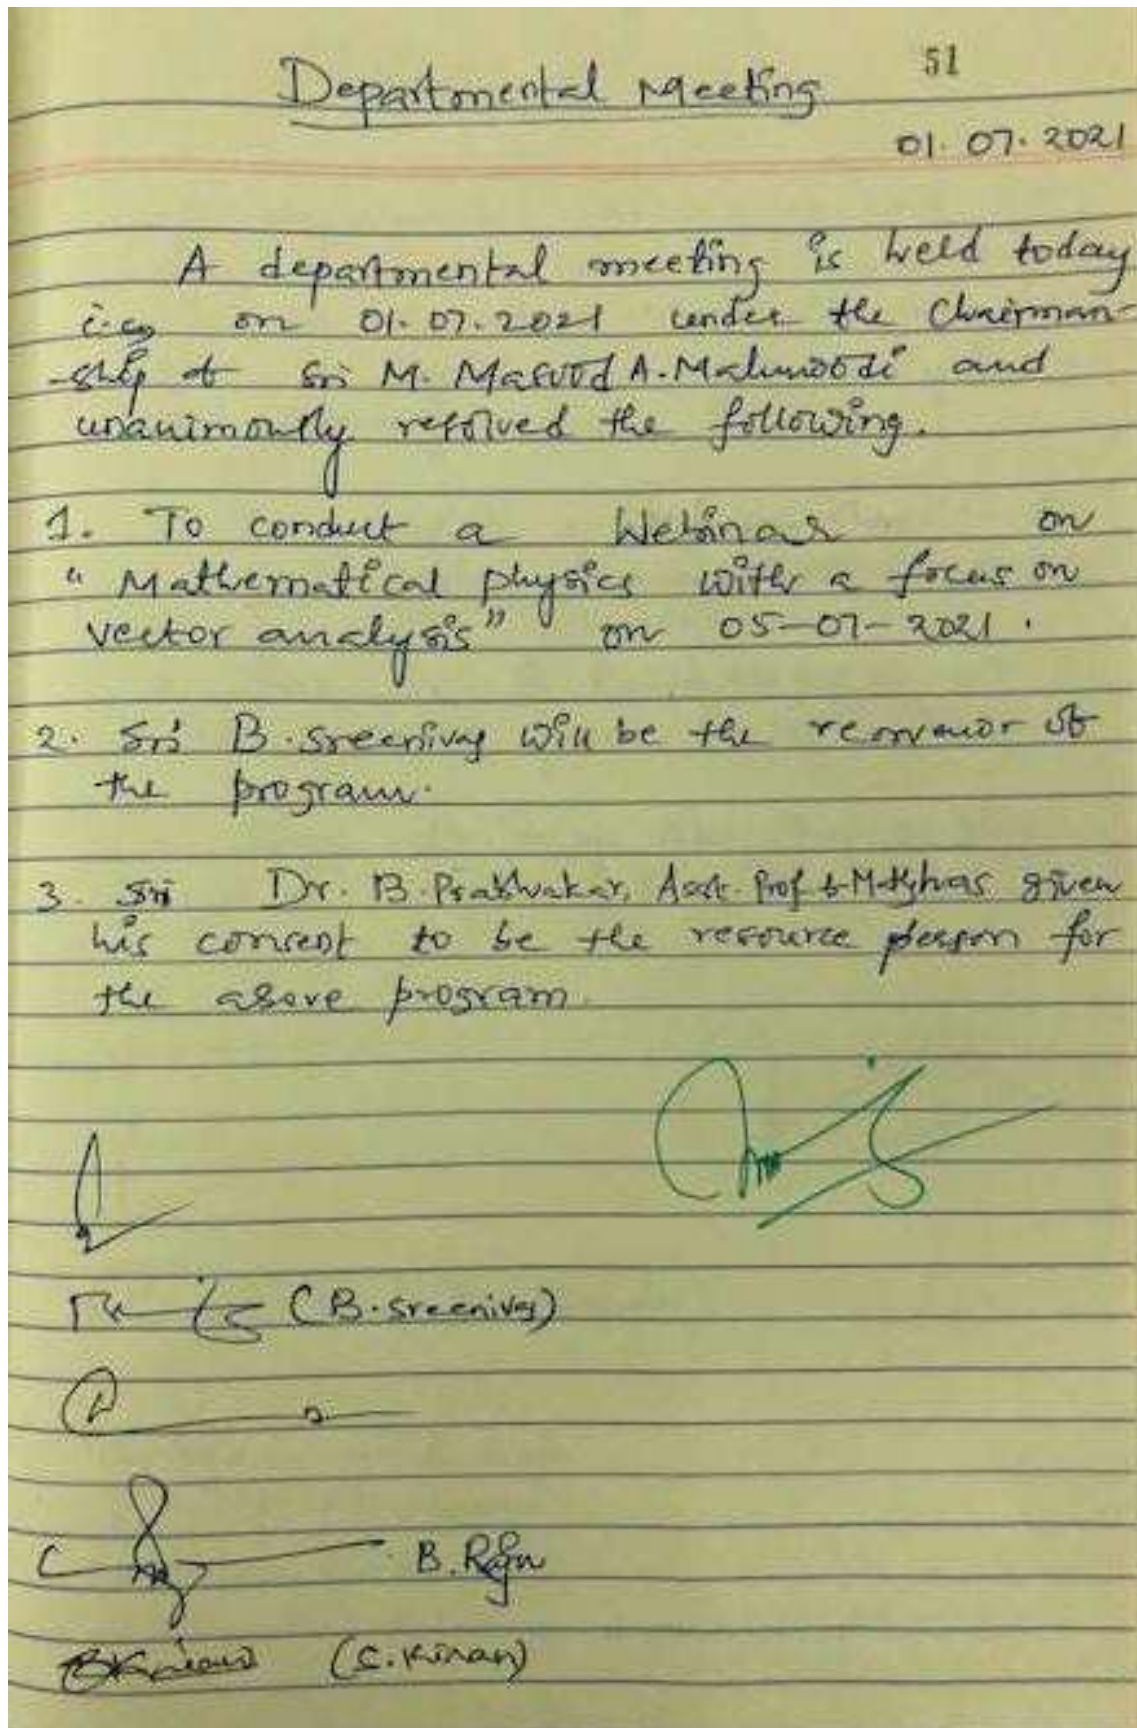 51
Departmental Meeting
01.07.2021
A departmental meeting is held today
i.e, on 01.07.2021 under the Chairman-
-ship of Sri M. Masood A. Mahmoodi and
unanimously resolved the following.
1. To conduct a Webinar on
"Mathematical physics with a focus on
vector analysis" on 05-07-2021.
2. Sri B. Sreenivas will be the of
the program.
3. Sri Dr. B. Prabhakar, Asst. Prof has given
his consent to be the resource person for
the above program.
(B. Sreenivas)
B. Raju
(C. Kiran)